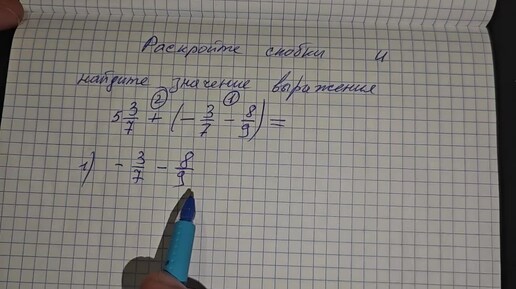 Раскройте скобки и
найдите значение выражения
② ①
5 3/7 + (- 3/7 - 8/9) =
1) - 3/7 - 8/9